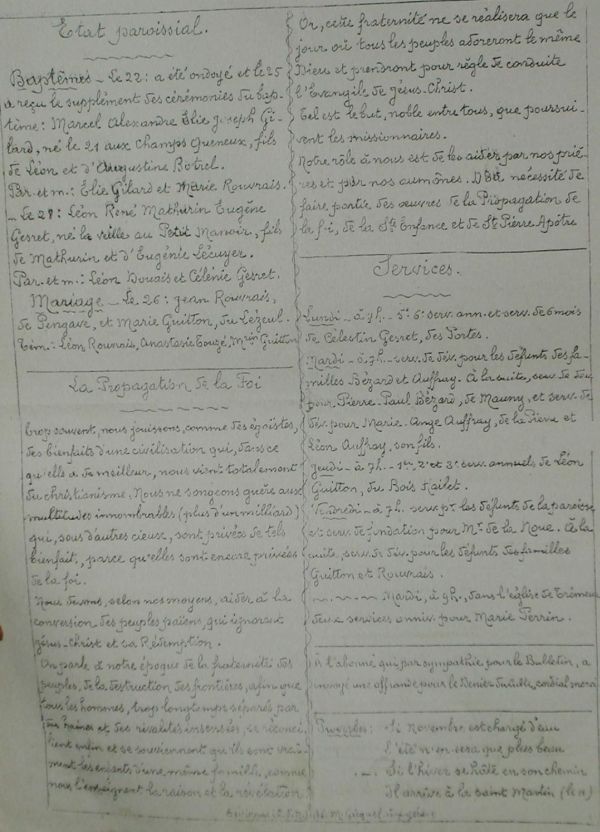 Etat paroissial.
Baptêmes - Le 22 : a été ondoyé et le 25
a reçu le supplément des cérémonies du bap-
tême : Marcel Alexandre Elie Joseph Gi-
lard, né le 21 aux Champs Queneux, fils
de Léon et d'Augustine Botrel.
Par. et m. : Elie Gilard et Marie Rouvrais.
- Le 28 : Léon René Mathurin Eugène
Gesret, né la veille au Petit Manoir, fils
de Mathurin et d'Eugénie Lécuyer.
Par. et m : Léon Douais et Célénie Gesret.
Mariage - Le 26 : Jean Rouvrais,
de Pengave, et Marie Guitton, du Lézeul.
Tém. : Léon Rounois, Anastasie Touzé, Guitton
La Propagation de la Foi
Trop souvent, nous jouissons, comme des égoïstes,
des bienfaits d'une civilisation qui, dans ce
qu'elle a de meilleur, nous vient totalement
du christianisme. Nous ne songeons guère aux
multitudes innombrables (plus d'un milliard)
qui, sous d'autres cieux, sont privées de tels
bienfaits, parce qu'elles sont encore privées
de la foi.
Nous devons, selon nos moyens, aider à la
conversion des peuples païens, qui ignorent
Jésus-Christ et sa Rédemption.
On parle à notre époque de la fraternité des
peuples, de la destruction des frontières, afin que
tous les hommes, trop longtemps séparés par
des haines et des rivalités insensées, se réconci-
lient enfin et se souviennent qu'ils sont vrai-
ment les enfants d'une même famille, comme
nous l'enseignent la raison et la révélation.
Or, cette fraternité ne se réalisera que le
jour où tous les peuples adoreront le même
Dieu et prendront pour règle de conduite
l'Evangile de Jésus-Christ.
Tel est le but, noble entre tous, que poursui-
vent les missionnaires.
Notre rôle à nous est de les aider par nos priè-
res et par nos aumônes. D'où nécessité de
faire partie des œuvres de la Propagation de
la foi, de la Ste Enfance et de St Pierre Apôtre
Services.
Lundi - à 7h. - 5e 6e serv. ann. et serv. de 6 mois
de Célestin Gesret, des Portes.
Mardi - à 7h. - serv. de dév. pour les défunts des fa-
milles Bézard et Auffray. À la suite, serv. de dév.
pour Pierre-Paul Bézard, de Mauny, et serv. de
dév. pour Marie-Ange Auffray, de la Ville et
Léon Auffray, son fils.
Jeudi - à 7h. - 1er, 2e et 3e serv. annuels de Léon
Guitton, du Bois Hailet.
Vendredi - à 7h. serv. pr. les défunts de la paroisse
et serv. de fondation pour Mr. de la Noue. À la
suite, serv. de dév. pour les défunts des familles
Guitton et Rouvrais.
Mardi, à 9h., dans l'église de Trémeur
deux services anniv. pour Marie Perrin.
À l'abonné qui par sympathie pour le Bulletin, a
envoyé une offrande pour le Denier cordial merci
Proverbes : Si novembre est chargé d'eau
L'été n'en sera que plus beau
Si l'hiver se hâte en son chemin
Il arrive à la saint Martin (le 11)